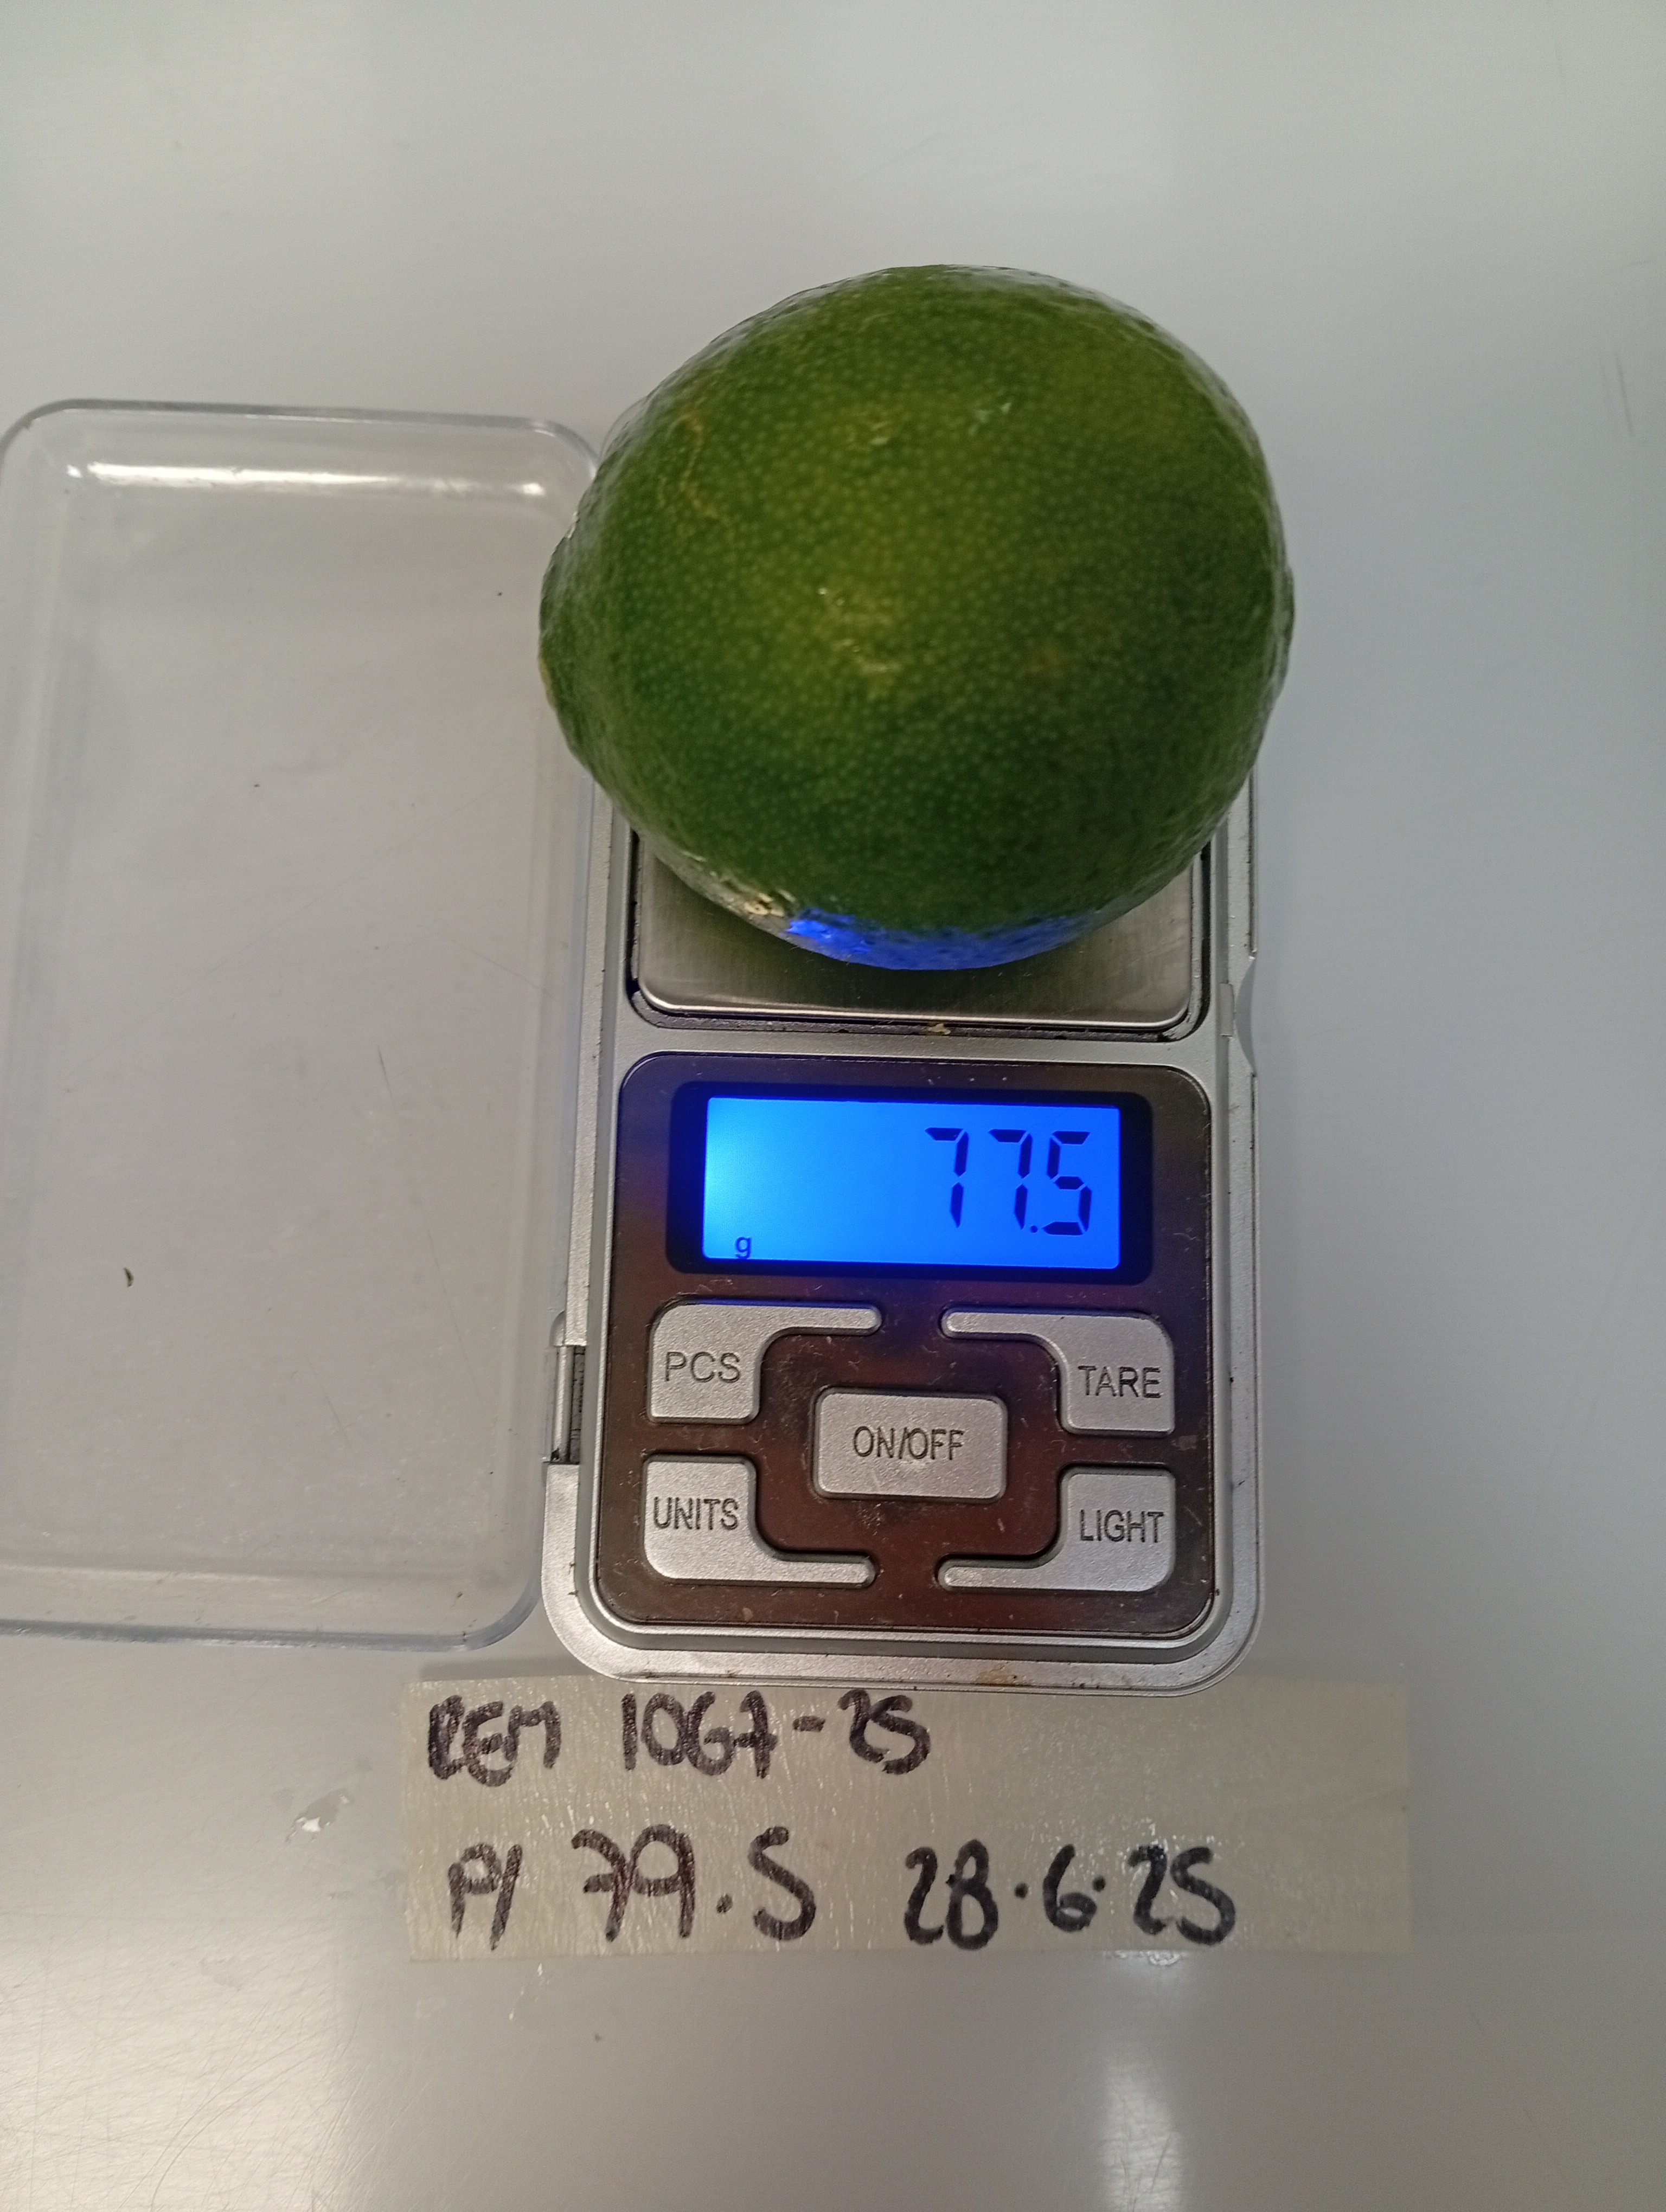 77.5
g
PCS
TARE
ON/OFF
UNITS
LIGHT
REM 1067-25
P/ 79.5 28.6.25